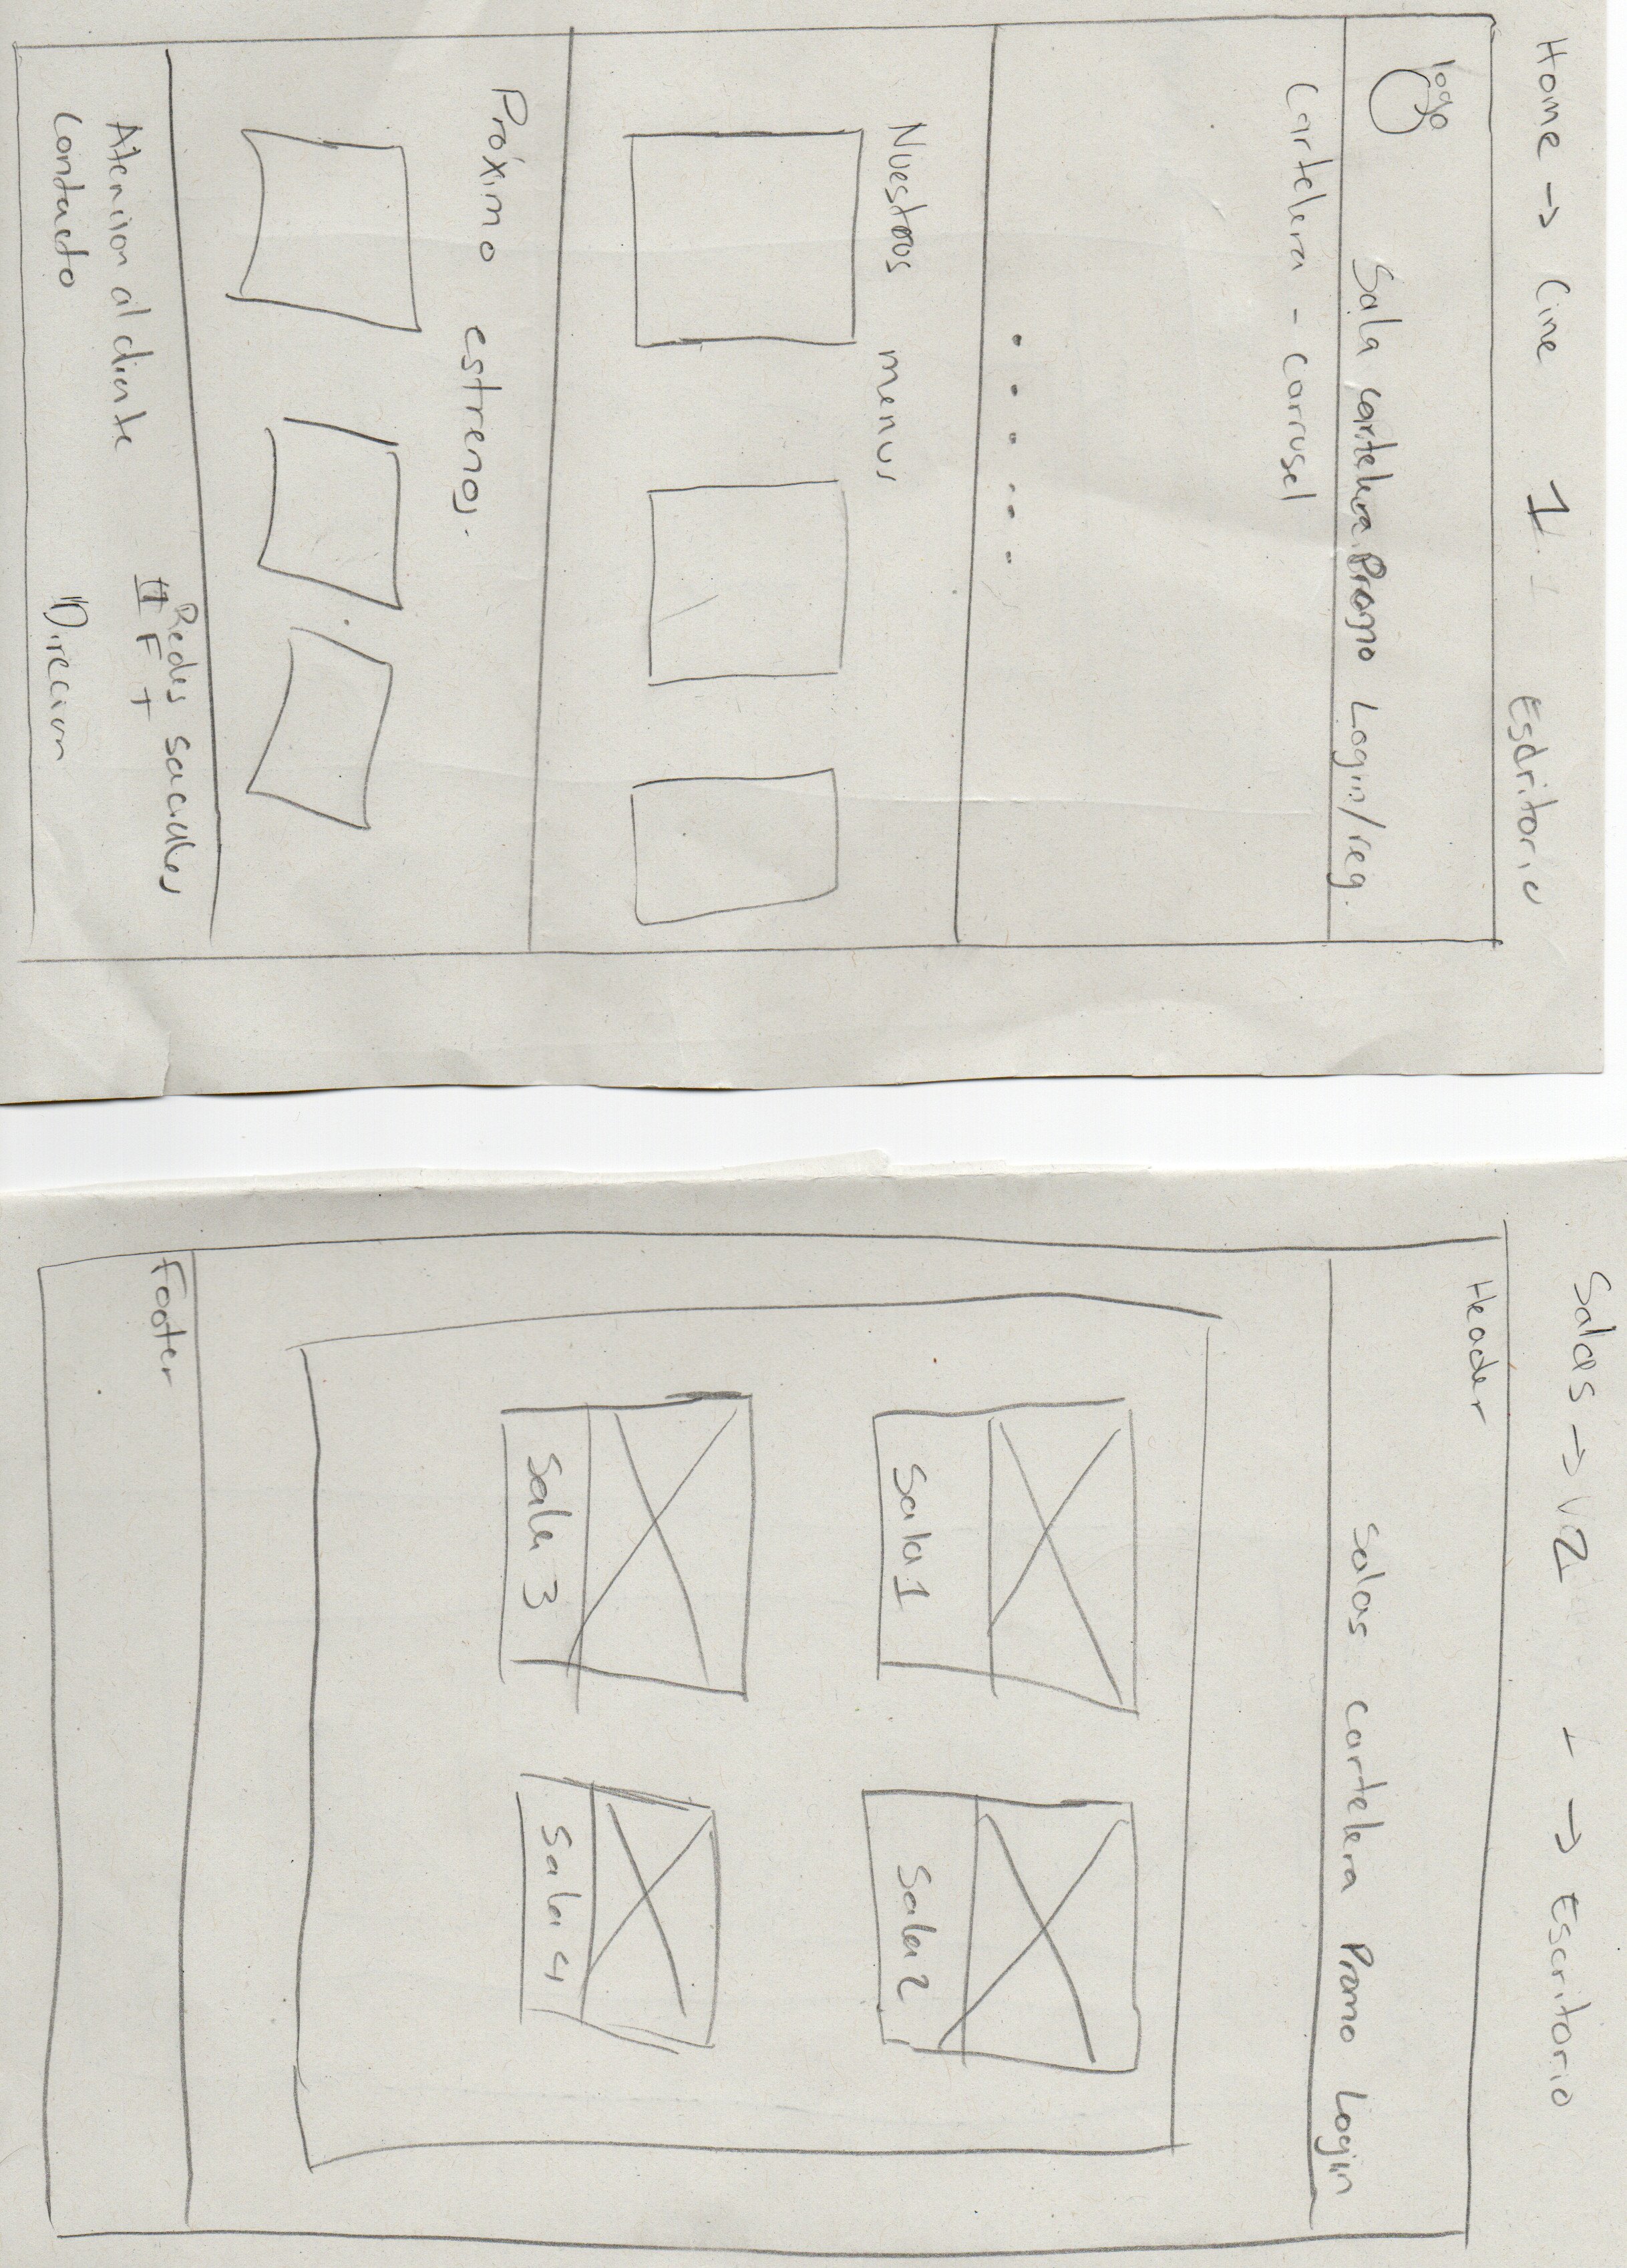 Home -> Cine 1 Escritorio
logo
Sala cartelera Promo Login/reg.
Cartelera - carrusel
Nuestros menus
Próximo estrenos.
Redes sociales
F T
Atencion al cliente
Contacto
Direcion
Salas -> V2 -> Escritorio
Header
Salas cartelera Promo Login
Sala 1
Sala 2
Sala 3
Sala 4
Footer